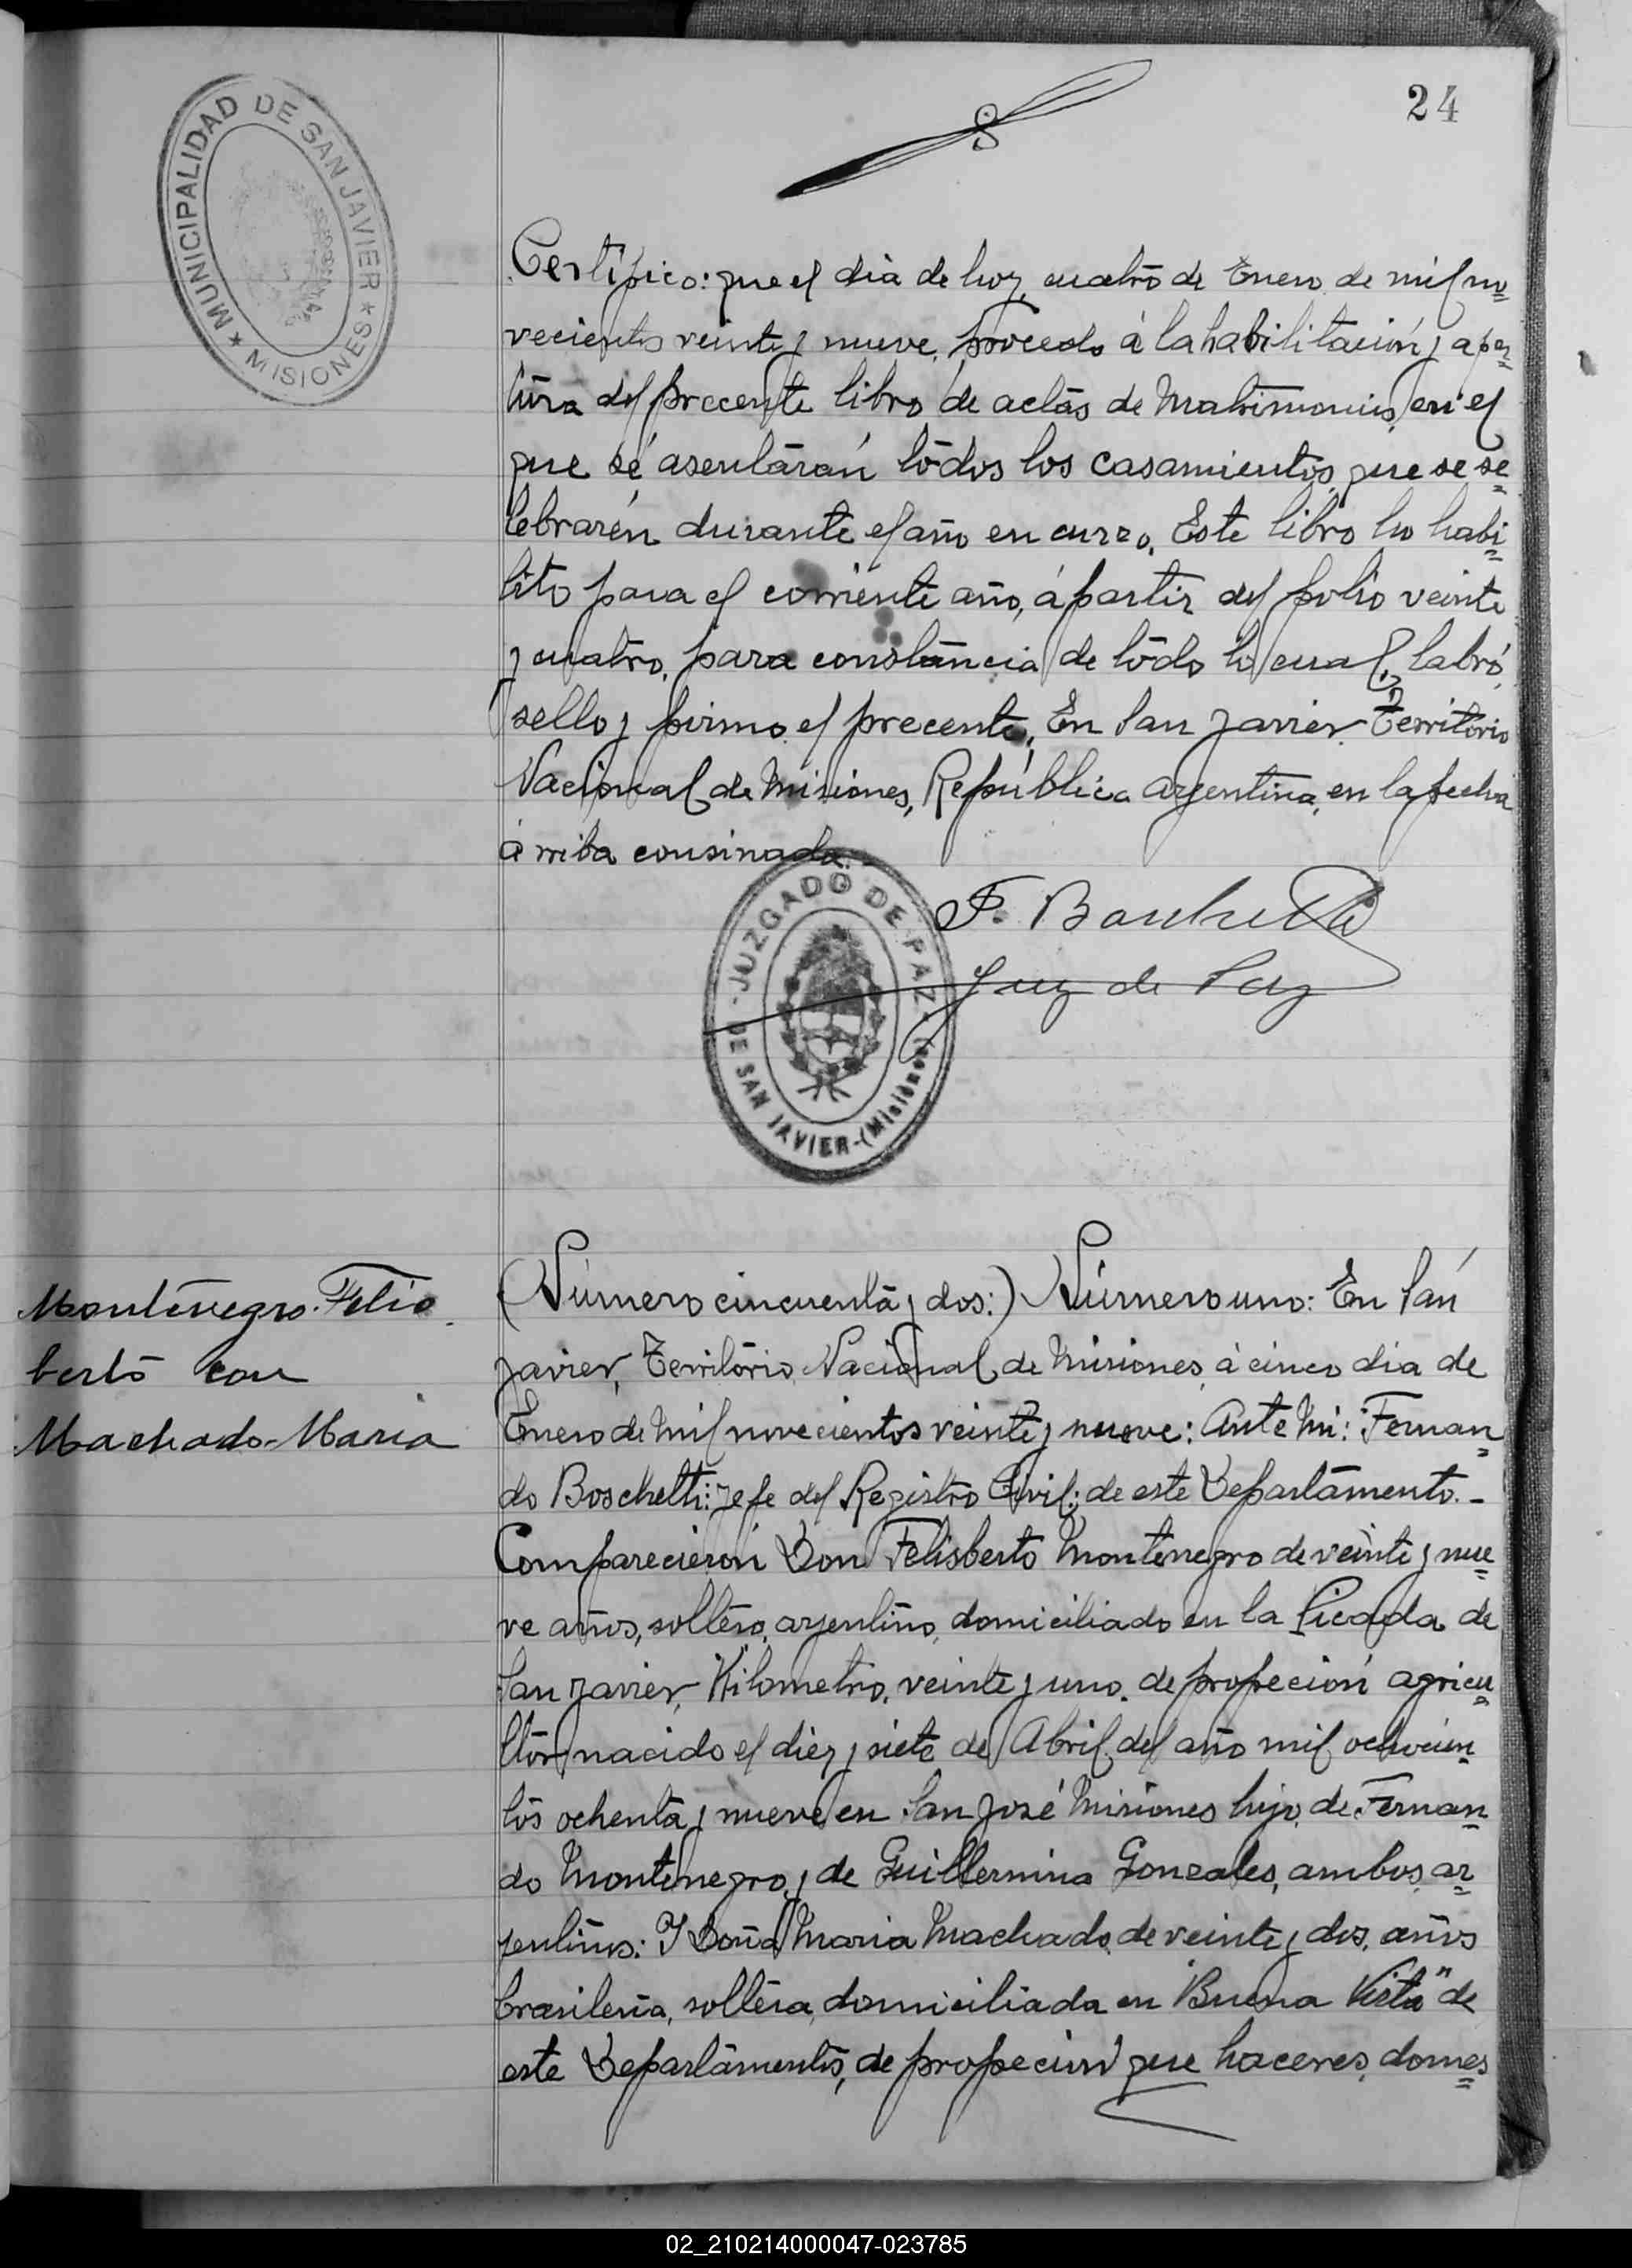 24
MUNICIPALIDAD DE SAN JAVIER
★ MISIONES ★
Certifico: que el dia de hoy, cuatro de Enero de mil no=
vecientos veinte y nueve, procedo á la habilitación y aper=
tura del precente libro de actas de Matrimonios, en el
que sé asentarán todos los casamientos que se se=
lebrarén durante el año en curzo. Este libro lo habi=
lito para el corriente año, á partir del folio veinte
y cuatro, para constáncia de todo lo cual, labró,
sello y firmo el precente, En San Javier Territorio
Nacional de Misiones, República Argentina, en la fecha
á rriba consinada.
F. Boschetti
Juez de Paz
JUZGADO DE PAZ
DE SAN JAVIER-(Misiones)
Montenegro Felis
berto con
Machado Maria
(Número cincuenta y dos:) Número uno: En San
Javier, Territorio Nacional de Misiones á cinco dia de
Enero de Mil novecientos veinte y nueve: Ante Mi: Fernan=
do Boschetti: Jefe del Registro Civil: de este Departamento.-
Comparecieron Don Felisberto Montenegro de veinte y nue=
ve años, soltero, argentino, domiciliado en la Picada de
San Javier, Kilometro, veinte y uno. de profeción agricu=
ltor nacido el diez y siete de Abril del año mil ochocien=
tos ochenta y nueve en San José Misiones hijo de Fernan=
do Montenegro y de Guillermina Gonzales, ambos ar=
jentinos: Y Doña Maria Machado de veinte y dos años
brasileña, soltera, domiciliada en Buena Vista" de
este Departamento, de profeción que haceres domes=
02_210214000047-023785